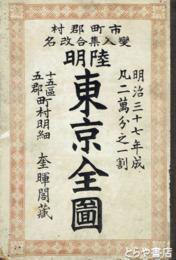 市郡町村
變入集合改名
明治三十七年成
凡二萬分之一割
東京全圖
十五區
五郡
町村明細
奎暉閣藏
とらや書店